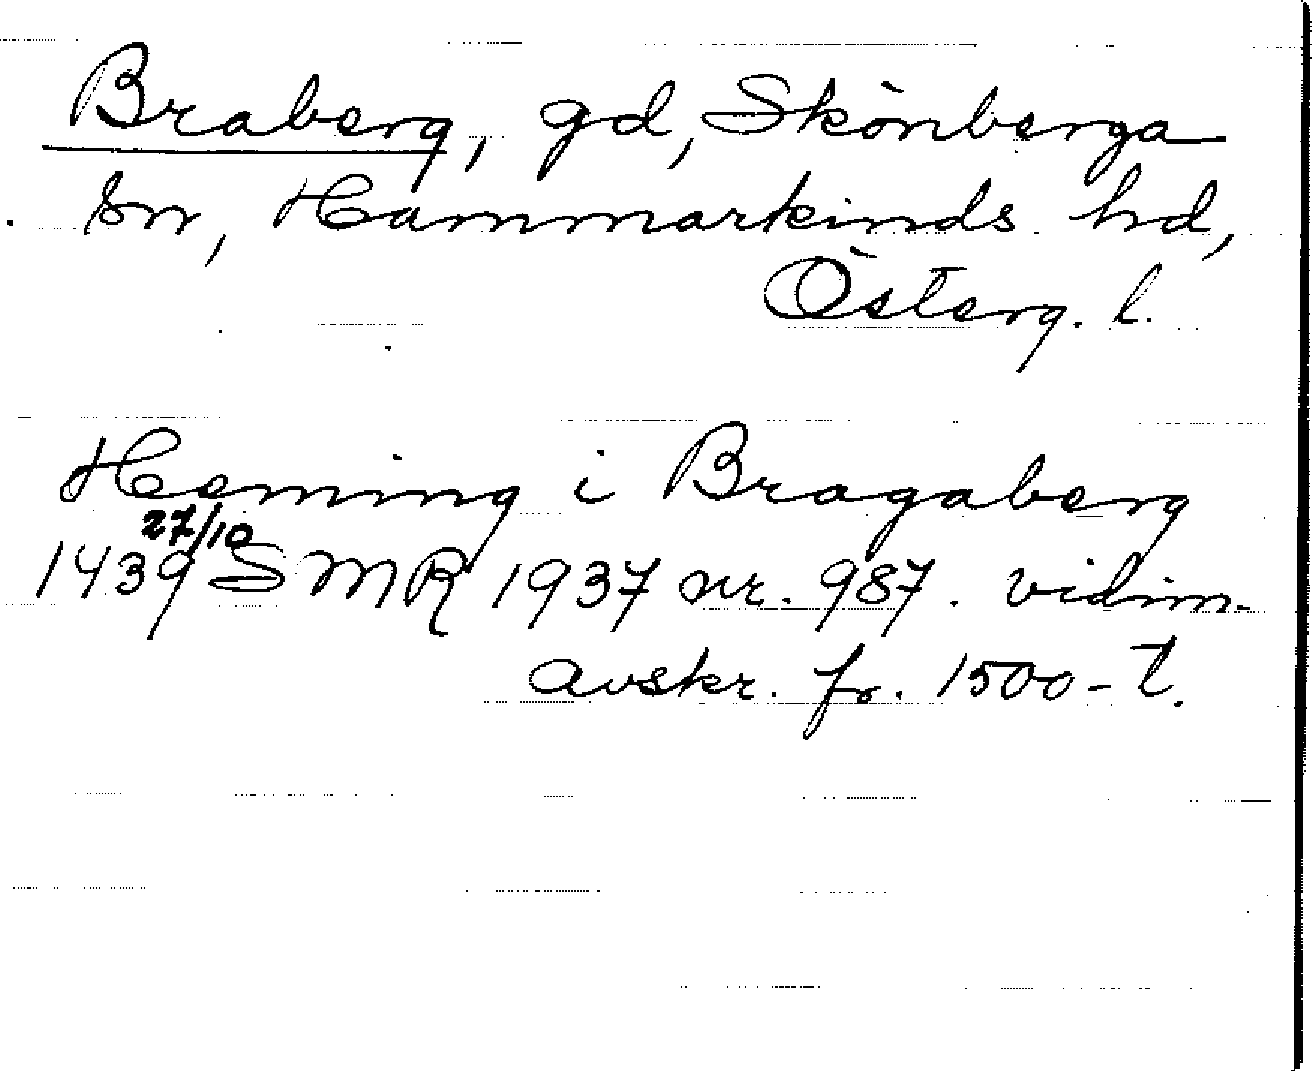 Braberg, gd, Skönberga
sn, Hammarkinds hd,
Österg. l.
Heming i Bragaberg
27/10
1439 SMR 1937 nr. 987. vidim.
avskr. fr. 1500-t.